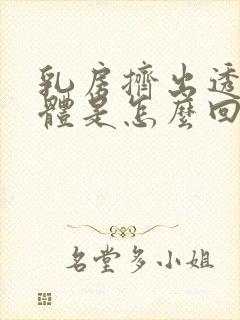 乳房擠出透
體是怎麼回
名堂多小姐